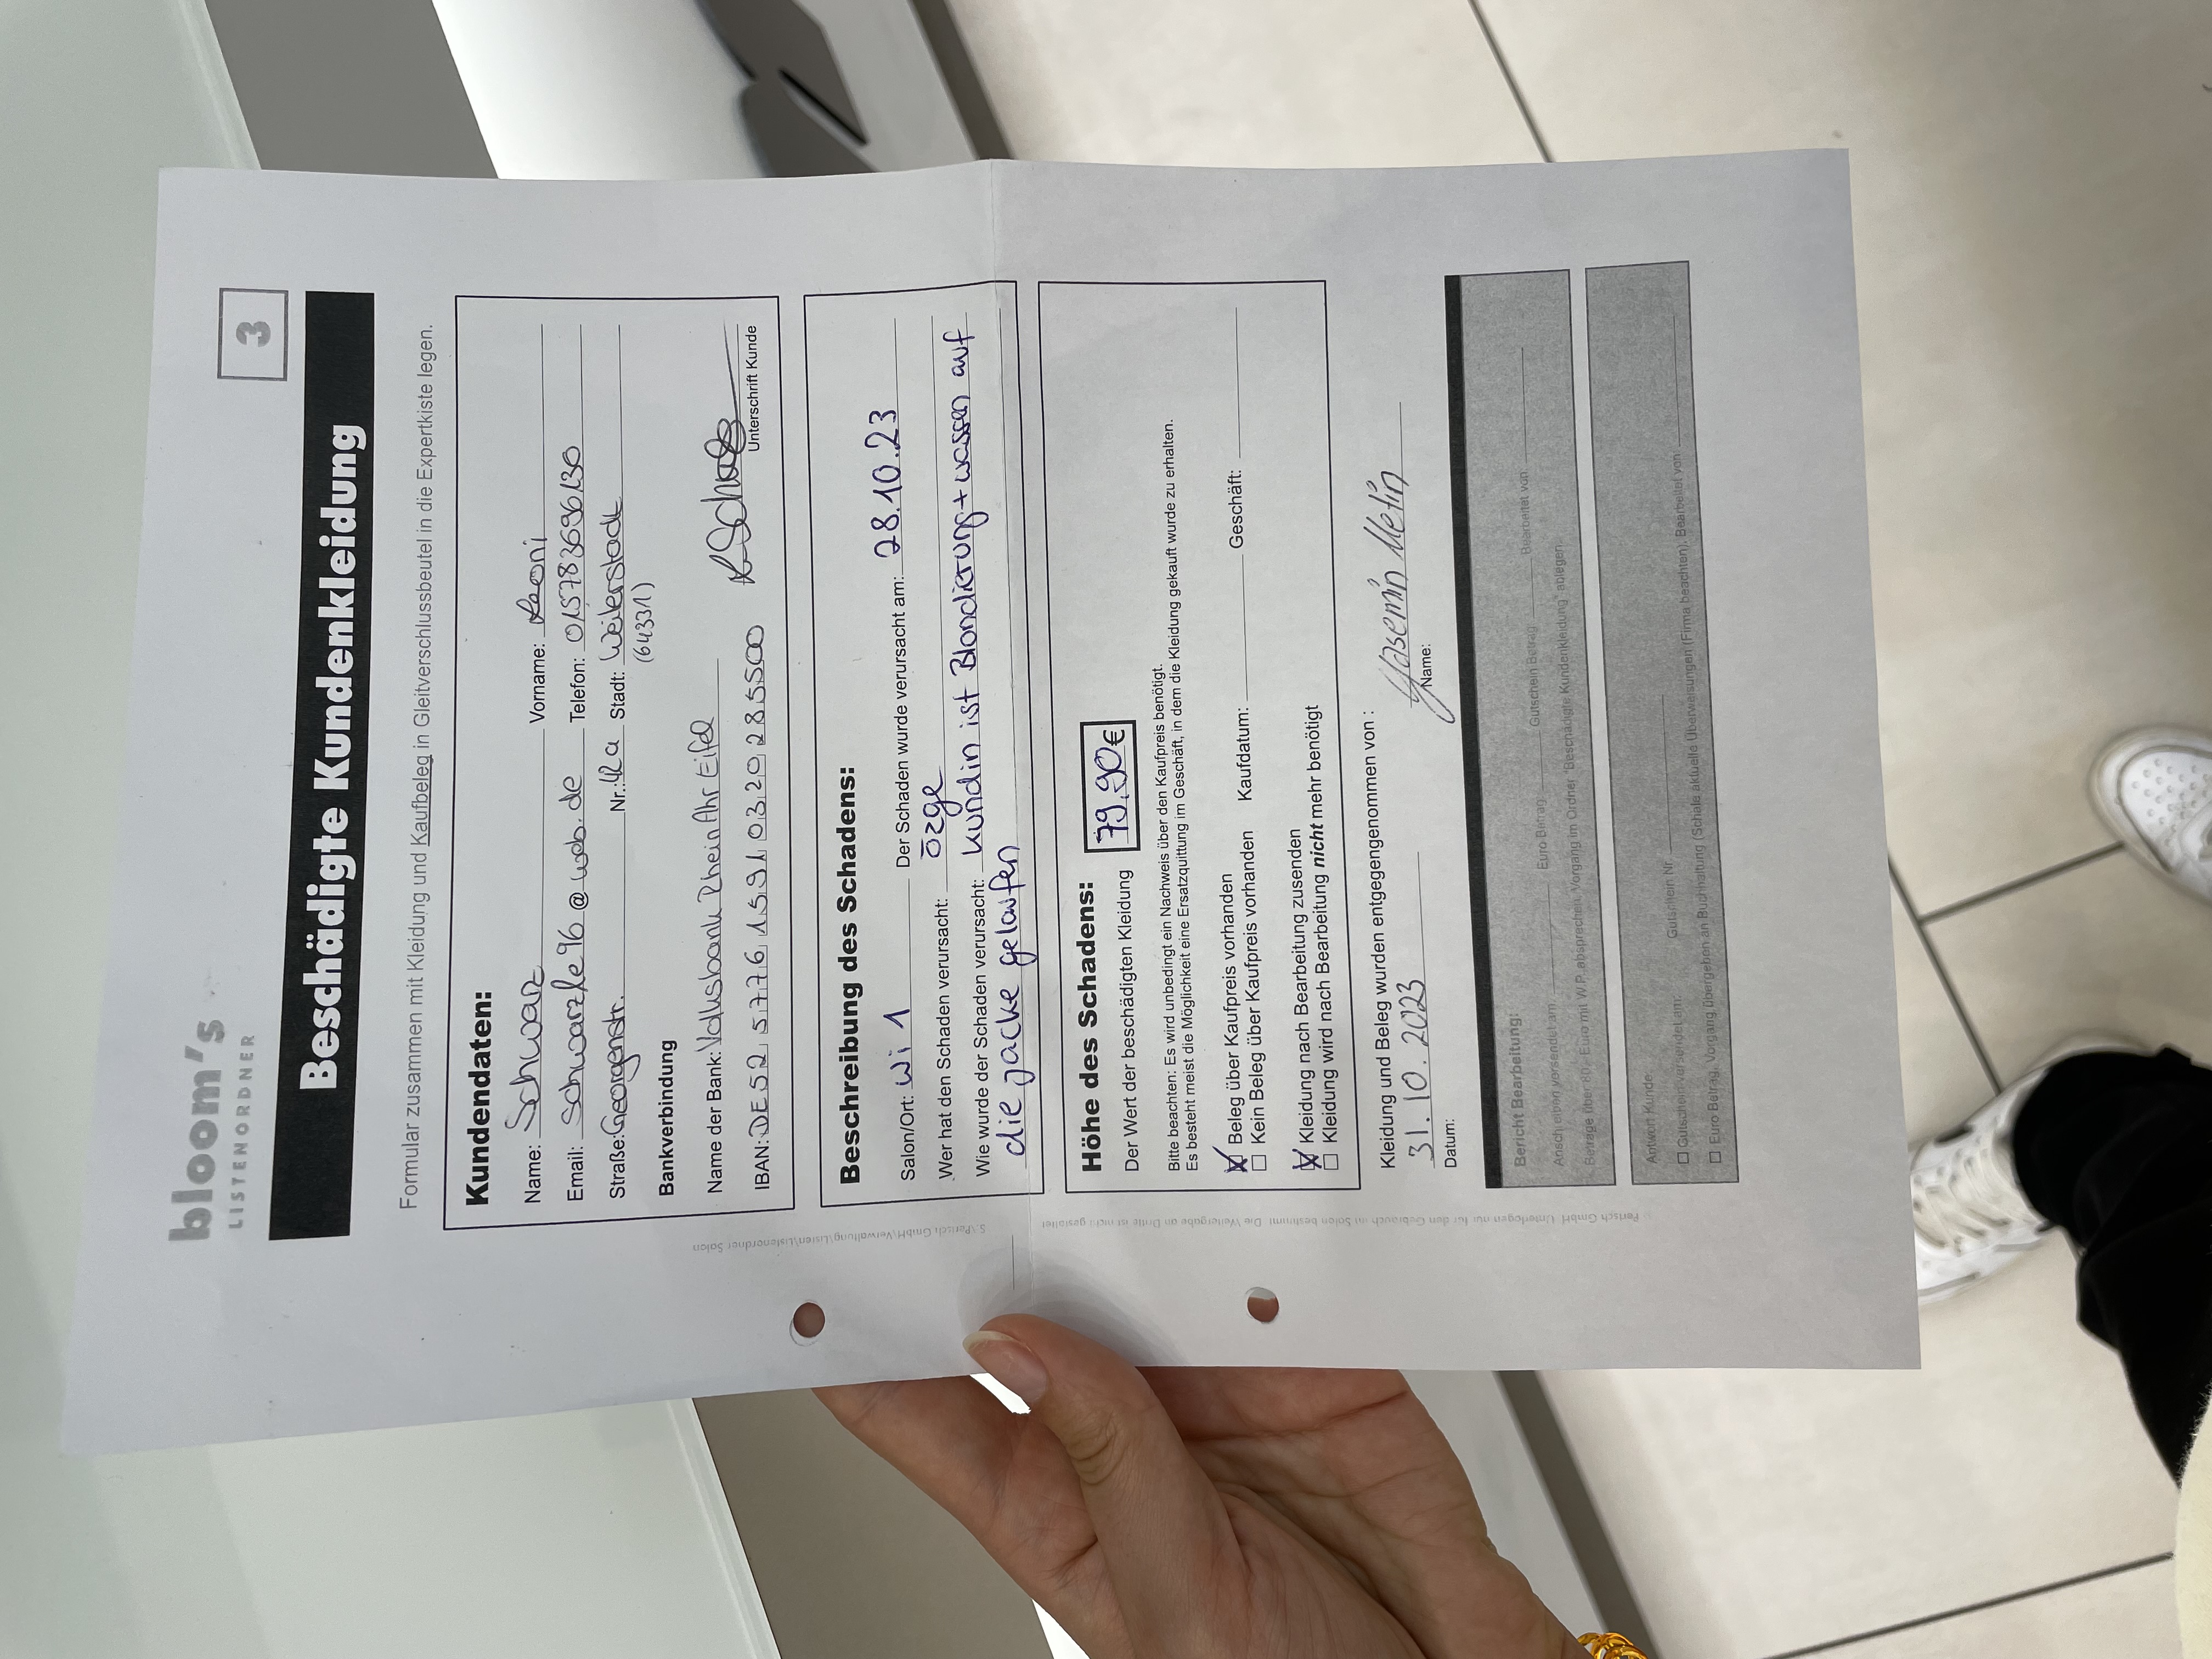 bloom's
LISTENORDNER
3
Beschädigte Kundenkleidung
Formular zusammen mit Kleidung und Kaufbeleg in Gleitverschlussbeutel in die Expertkiste legen.
Kundendaten:
Name: Schwarz Vorname: Leoni
Email: schwarzle96@web.de Telefon: 015783696130
Straße: Georgenstr. Nr.: 42a Stadt: Weilerstadt
(64331)
Bankverbindung
Name der Bank: Volksbank RheinAhrEifel
IBAN: DE52 5776 1591 0320 285500
Unterschrift Kunde
Beschreibung des Schadens:
Salon/Ort: Wi 1 Der Schaden wurde verursacht am: 28.10.23
Wer hat den Schaden verursacht: Özge
Wie wurde der Schaden verursacht: Kundin ist Blondierung + wasser auf
die jacke gelaufen
Höhe des Schadens:
Der Wert der beschädigten Kleidung 79,90€
Bitte beachten: Es wird unbedingt ein Nachweis über den Kaufpreis benötigt.
Es besteht meist die Möglichkeit eine Ersatzquittung im Geschäft, in dem die Kleidung gekauft wurde zu erhalten.
Beleg über Kaufpreis vorhanden
Kein Beleg über Kaufpreis vorhanden Kaufdatum: Geschäft:
Kleidung nach Bearbeitung zusenden
Kleidung wird nach Bearbeitung nicht mehr benötigt
Kleidung und Beleg wurden entgegengenommen von :
31.10.2023 Yasemin Metin
Datum: Name:
Bericht Bearbeitung:
Anschreiben versendet am: Euro Betrag: Gutschein Betrag: Bearbeitet von:
Beträge über 80,- Euro mit W.P. absprechen. Vorgang im Ordner "Beschädigte Kundenkleidung" ablegen.
Antwort Kunde:
Gutschein versendet am: Gutschein Nr.
Euro Betrag, Vorgang übergeben an Buchhaltung (Schale aktuelle Überweisungen (Firma beachten). Bearbeitet von:
S:\Pertsch GmbH\Verwaltung\Listen\Listenordner Salon
Pertsch GmbH Unterlagen nur für den Gebrauch im Salon bestimmt. Die Weitergabe an Dritte ist nicht gestattet